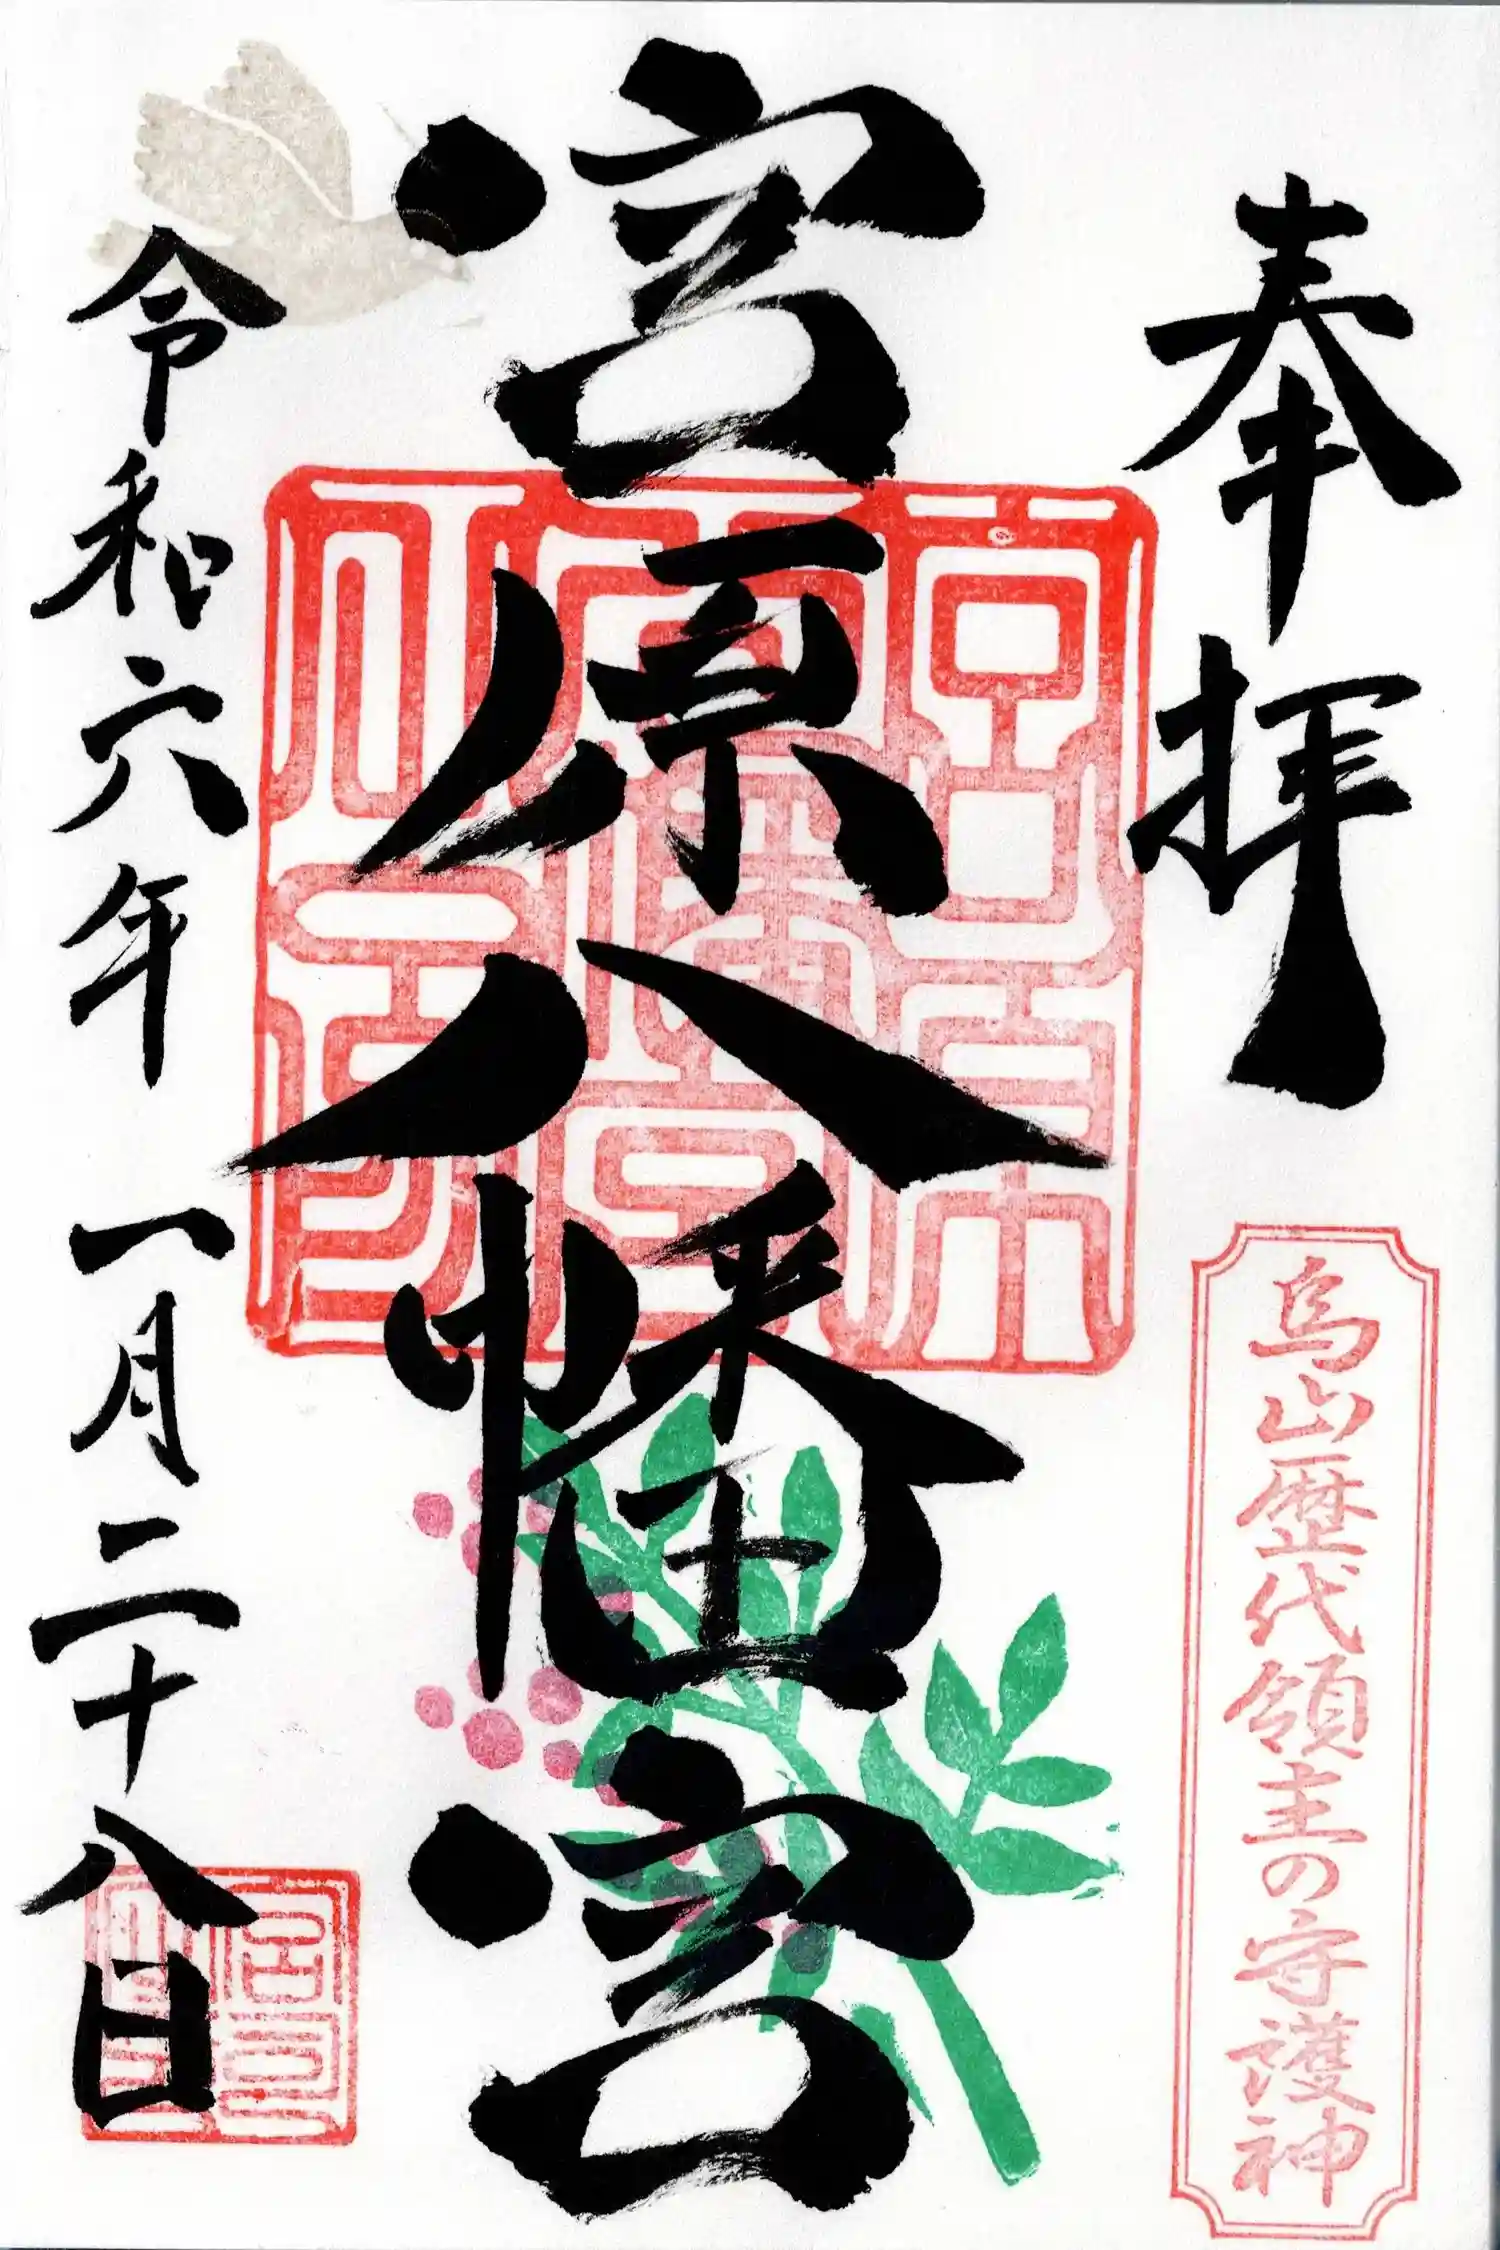 奉拝
烏山歴代領主の守護神
宮原八幡宮
令和六年一月二十八日